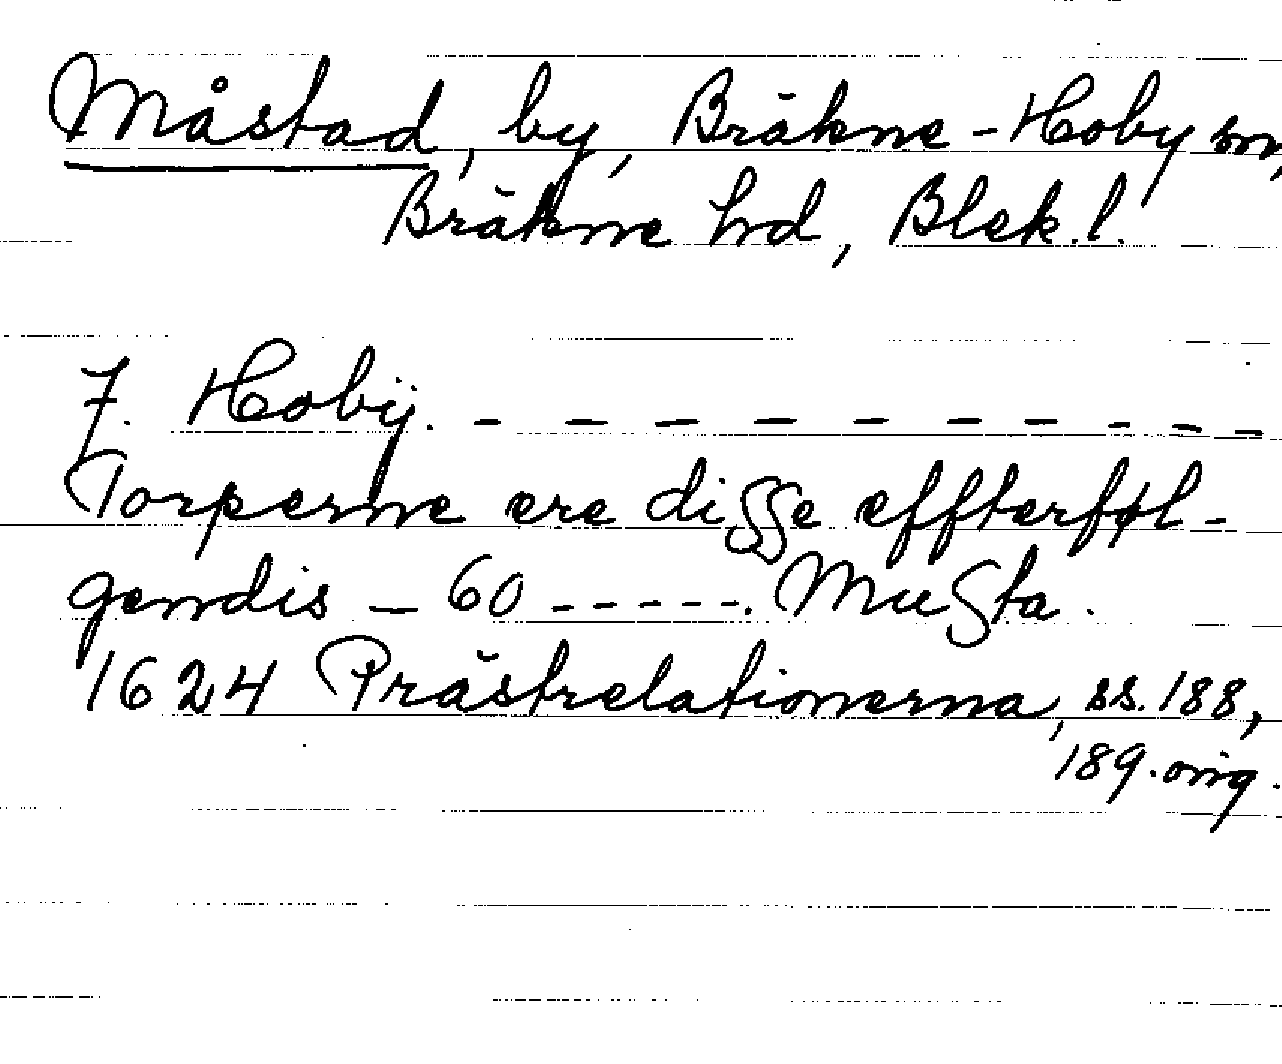 Måstad, by, Bräkne-Hoby sn,
Bräkne hd, Blek. l.
7. Hobÿ. - - - - - - - - - -
Torperne ere diſſe effterføl-
gendis - 60 - - - - - . Muſta.
1624 Prästrelationerna, ss. 188,
189. orig.